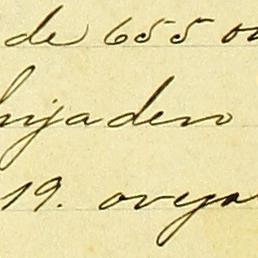 de 655 ov
hijadero
19. oveja